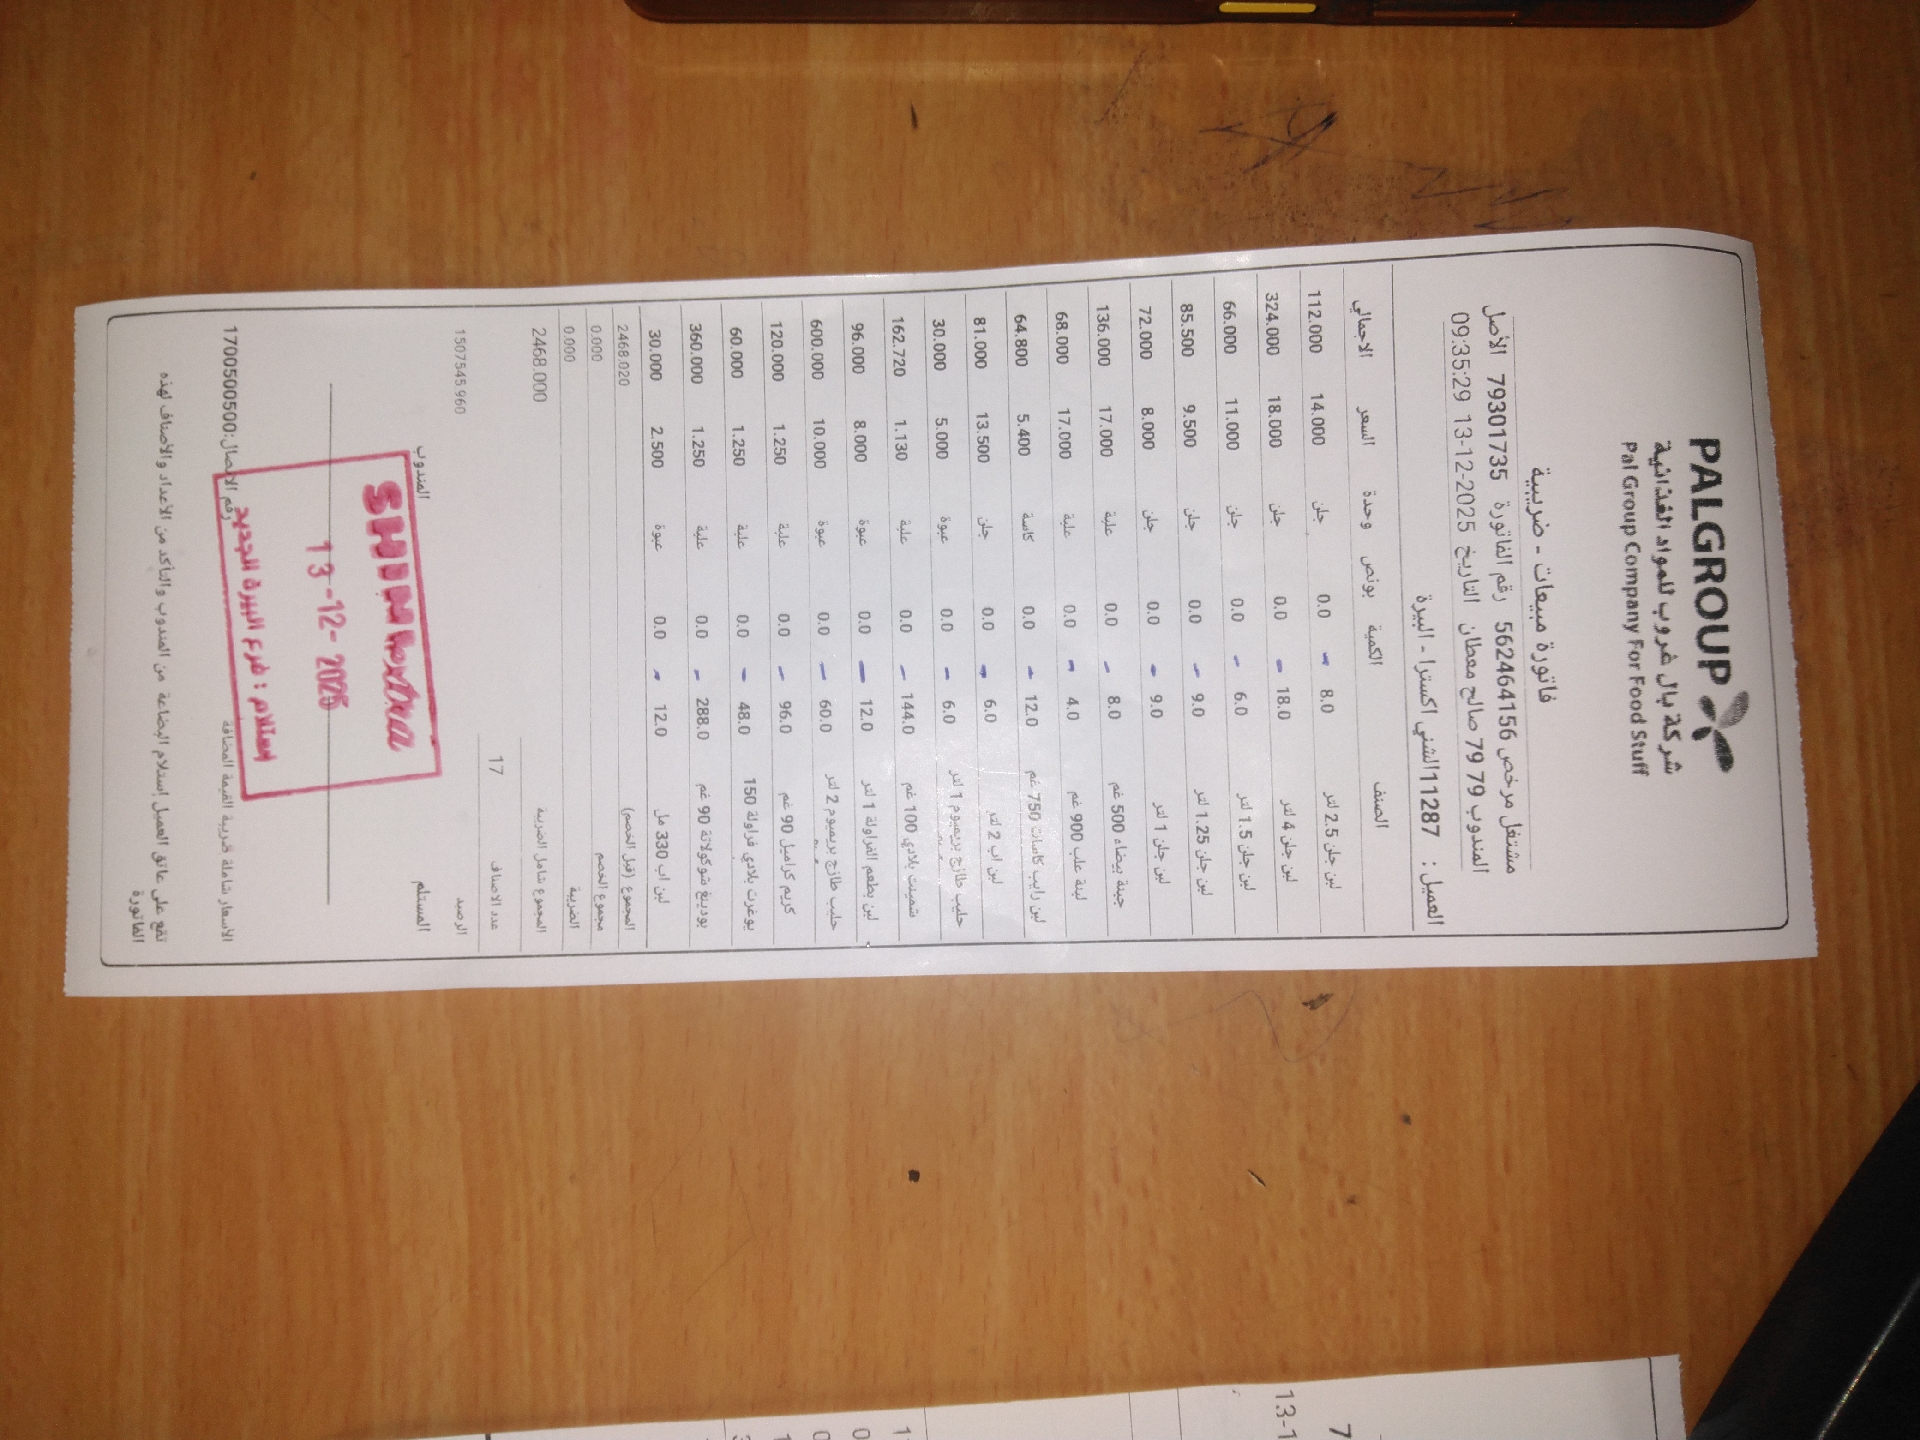 PALGROUP
شركة بال غروب للمواد الغذائية
Pal Group Company For Food Stuff
فاتورة مبيعات - ضريبية
مشتغل مرخص 562464156 رقم الفاتورة 79301735 الأصل
المندوب 79 79 صالح معطان التاريخ 13-12-2025 09:35:29
العميل : 11287الشني اكسترا - البيرة
الصنف الكمية بونص وحدة السعر الاجمالي
لبن جلن 2.5 لتر 8.0 0.0 جلن 14.000 112.000
لبن جلن 4 لتر 18.0 0.0 جلن 18.000 324.000
لبن جلن 1.5 لتر 6.0 0.0 جلن 11.000 66.000
لبن جلن 1.25 لتر 9.0 0.0 جلن 9.500 85.500
لبن جلن 1 لتر 9.0 0.0 جلن 8.000 72.000
جبنة بيضاء 500 غم 8.0 0.0 علبة 17.000 136.000
لبنة علب 900 غم 4.0 0.0 علبة 17.000 68.000
لبن رايب كاسات 750 غم 12.0 0.0 كاسة 5.400 64.800
لبن اب 2 لتر 6.0 0.0 جلن 13.500 81.000
حليب طازج بريميوم 1 لتر 6.0 0.0 عبوة 5.000 30.000
شمينت بلادي 100 غم 144.0 0.0 علبة 1.130 162.720
لبن بطعم الفراولة 1 لتر 12.0 0.0 عبوة 8.000 96.000
حليب طازج بريميوم 2 لتر 60.0 0.0 عبوة 10.000 600.000
كريم كراميل 90 غم 96.0 0.0 علبة 1.250 120.000
يوغرت بلادي فراولة 150 48.0 0.0 علبة 1.250 60.000
بودينغ شوكولاتة 90 غم 288.0 0.0 علبة 1.250 360.000
لبن اب 330 مل 12.0 0.0 عبوة 2.500 30.000
المجموع (قبل الخصم) 2468.020
مجموع الخصم 0.000
الضريبة 0.000
المجموع شامل الضريبة 2468.000
عدد الاصناف 17
الرصيد 1507545.960
المستلم المندوب
SHINI extra
13-12-2025
إستلام : فرع البيرة الجديد
الاسعار شاملة ضريبة القيمة المضافة رقم الاتصال:1700500500
تقع على عاتق العميل إستلام البضاعة من المندوب والتأكد من الأعداد والاصناف لهذه
الفاتورة